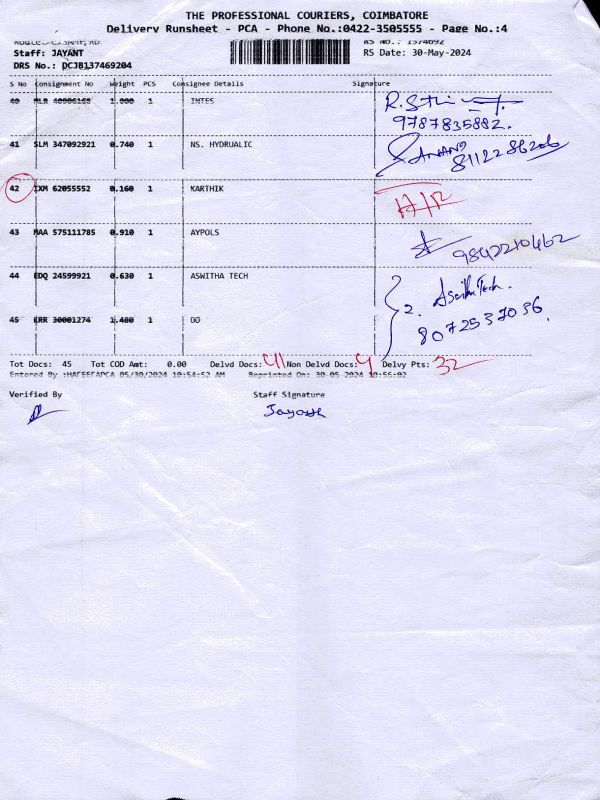 THE PROFESSIONAL COURIERS, COIMBATORE
Delivery Runsheet - PCA - Phone No.:0422-3505555 - Page No.:4
RS No.: 1374692
Staff: JAYANT
RS Date: 30-May-2024
DRS No.: DCJB137469204
S No Consignment No Weight PCS Consignee Details Signature
40 1.000 1 INTES
9787835882.
41 SLM 347092921 0.740 1 NS. HYDRUALIC
ANAND
8112286206
42 IXM 62055552 0.160 1 KARTHIK
43 MAA 575111785 0.910 1 AYPOLS
9842210462
44 EDQ 24599921 0.630 1 ASWITHA TECH
2. Aswitha Tech.
8072537036.
45 KRR 30001274 1.480 1 DG
Tot Docs: 45 Tot COD Amt: 0.00 Delvd Docs: 41 Non Delvd Docs: 4 Delvy Pts: 32
05/30/2024 10:54:52 AM Reprinted On: 30-05-2024 10:56:02
Verified By Staff Signature
Jayanth